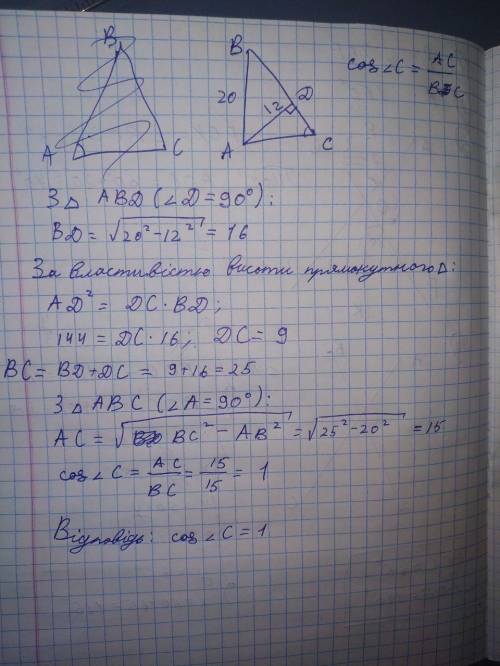 B
A
C
B
20
12
D
A
C
cos∠C = AC/BC
З △ ABD (∠D = 90°):
BD = √20² - 12² = 16
За властивістю висоти прямокутного △:
AD² = DC · BD;
144 = DC · 16; DC = 9
BC = BD + DC = 9 + 16 = 25
З △ ABC (∠A = 90°):
AC = √BC² - AB² = √25² - 20² = 15
cos∠C = AC/BC = 15/15 = 1
Відповідь: cos∠C = 1